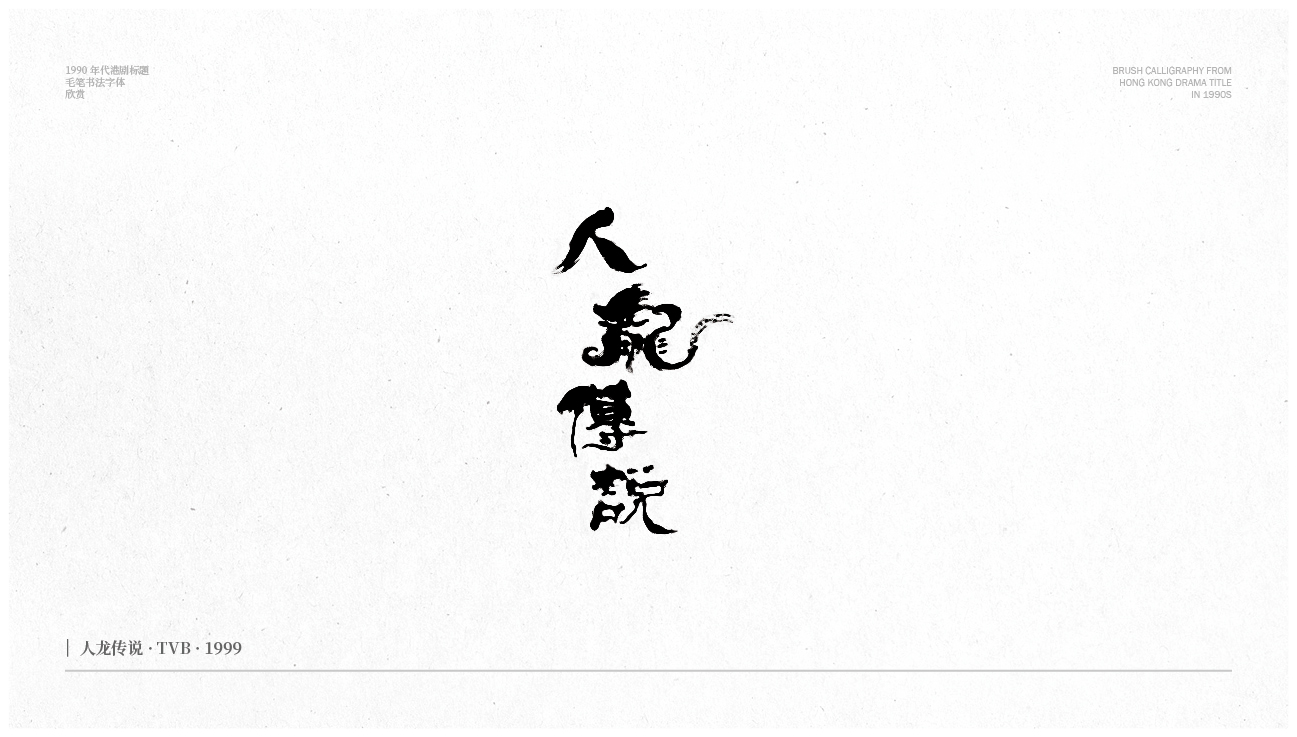 1990 年代港剧标题
毛笔书法字体
欣赏
BRUSH CALLIGRAPHY FROM
HONG KONG DRAMA TITLE
IN 1990S
人
龍
傳
說
人龙传说 · TVB · 1999